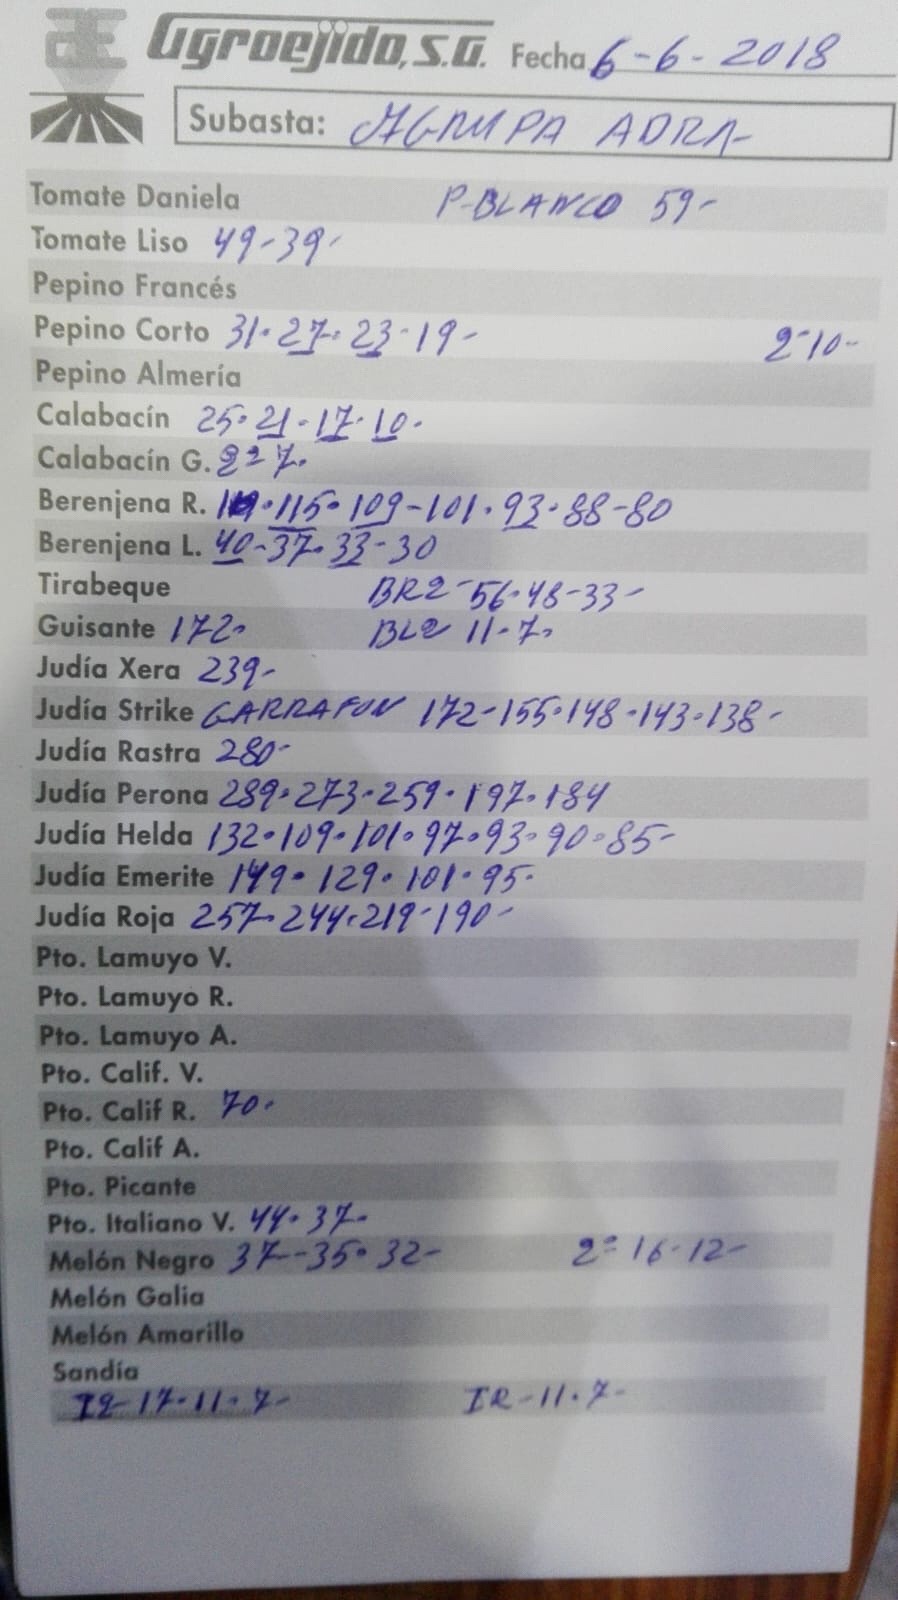 Agroejido, S.A. Fecha 6-6-2018
Subasta: AGRUPA ADRA
Tomate Daniela P-BLANCO 59-
Tomate Liso 49-39-
Pepino Francés
Pepino Corto 31-27-23-19- 2ª10-
Pepino Almería
Calabacín 25-21-17-10-
Calabacín G. 2ª7-
Berenjena R. 115-109-101-93-88-80
Berenjena L. 40-37-33-30
Tirabeque BR2-56-48-33-
Guisante 172- BL2 11-7-
Judía Xera 239-
Judía Strike GARRAFON 172-155-148-143-138-
Judía Rastra 280-
Judía Perona 289-273-259-197-184
Judía Helda 132-109-101-97-93-90-85-
Judía Emerite 149-129-101-95-
Judía Roja 257-244-219-190-
Pto. Lamuyo V.
Pto. Lamuyo R.
Pto. Lamuyo A.
Pto. Calif. V.
Pto. Calif R. 70-
Pto. Calif A.
Pto. Picante
Pto. Italiano V. 44-37-
Melón Negro 37-35-32- 2ª 16-12-
Melón Galia
Melón Amarillo
Sandía
17-11-7- IR-11-7-